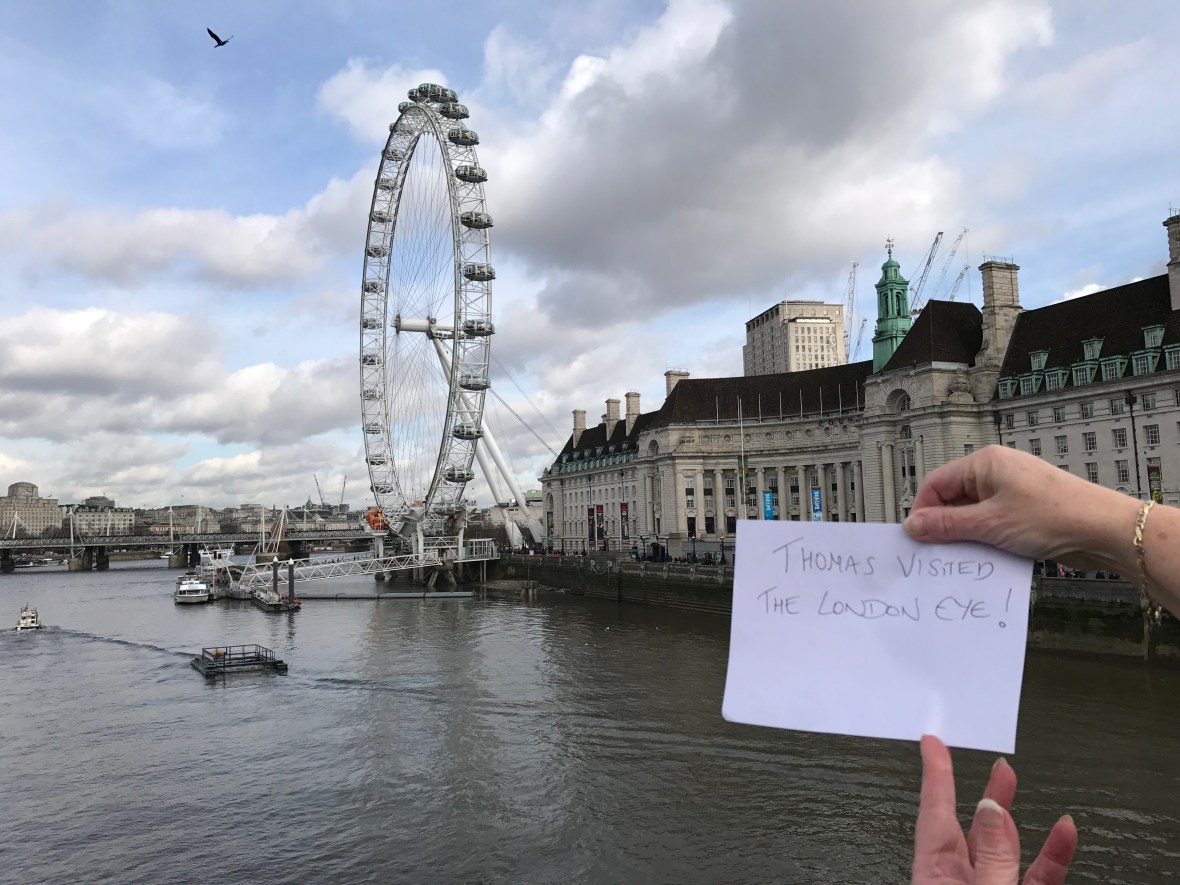 THOMAS VISITED
THE LONDON EYE!